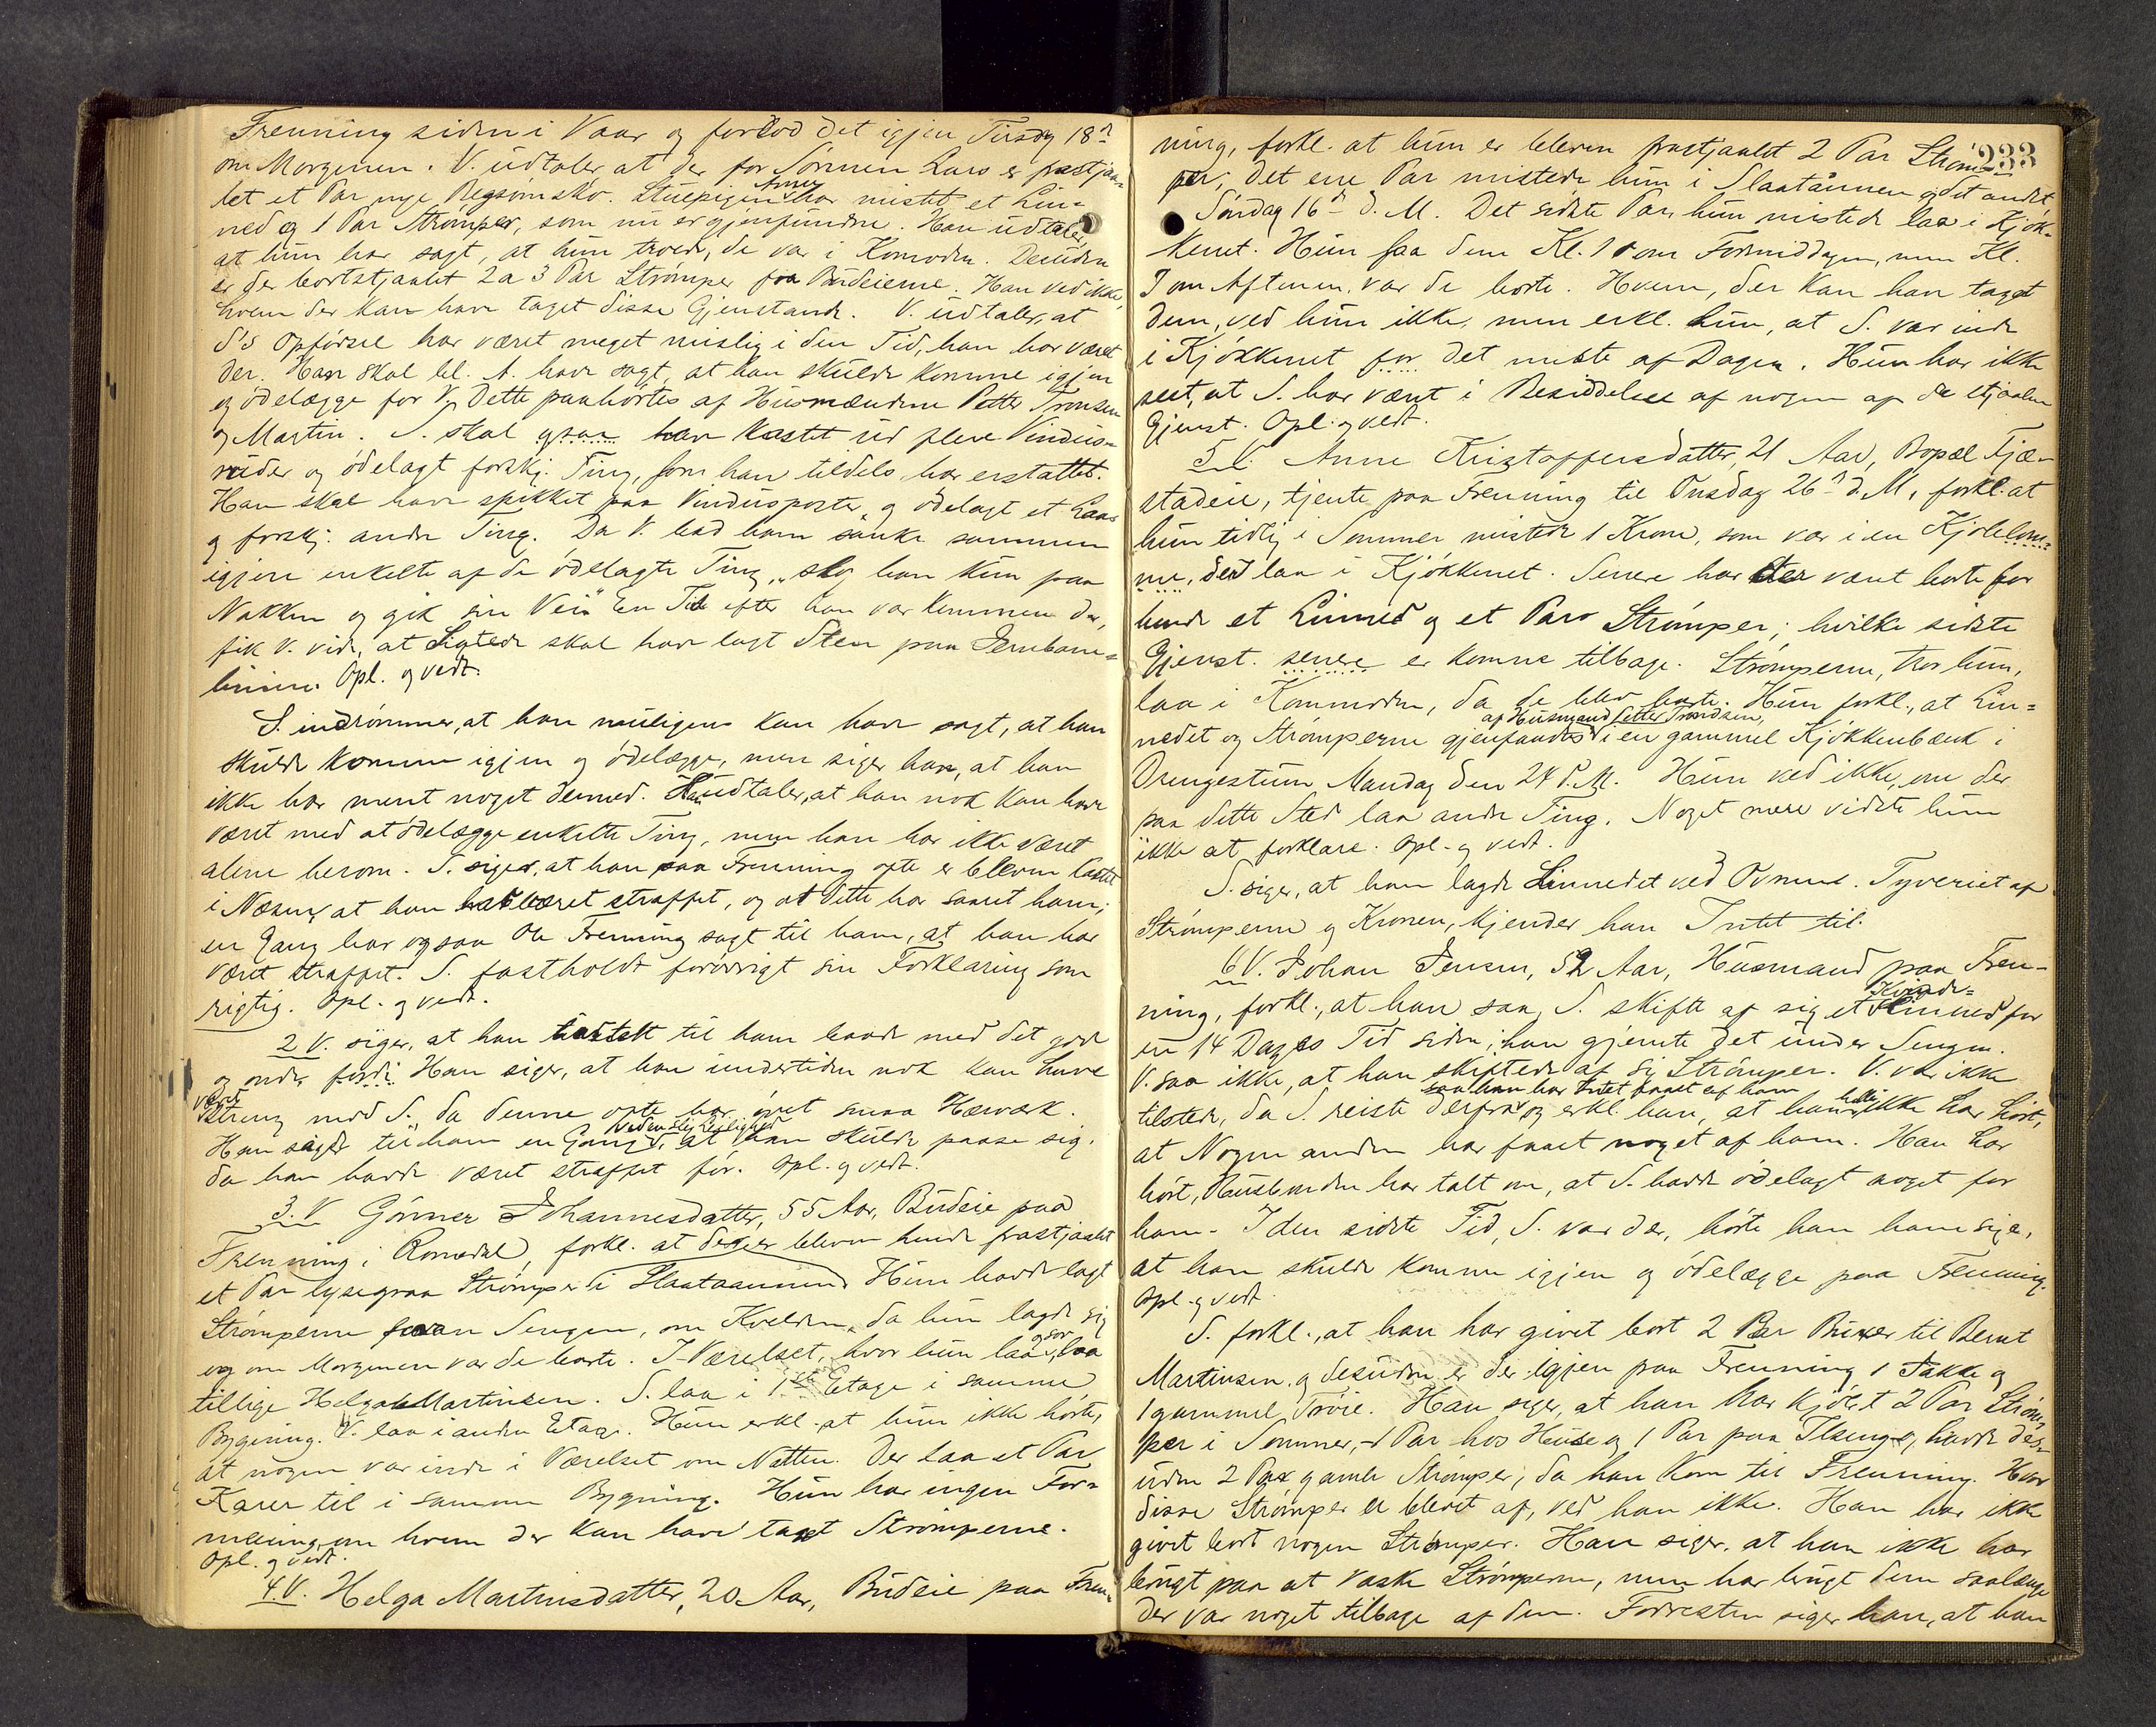 Frenning siden i Vaar og forlod det igjen Tirsdag 18d
om Morgenen. V. udtaler at der for Sønnen Lars er frastjaa-
let et Par nye Regsomsko. Stuepigen Anne har mistet et Lin-
ned og 1 Par Strømper, som nu er gjenfundne. Han udtaler,
at hun har sagt, at hun troede, de var i Komoden. Desuden
er der bortstjaalet 2 a 3 Par Strømper fra Budeierne. Han ved ikke,
hvem der kan have taget disse Gjenstande. V. udtaler, at
S's Opførsel har været meget mislig i den Tid, han har været
der. Han skal bl. A. have sagt, at han skulde komme igjen
og ødelægge for V. Dette paahørtes af Husmændene Petter Tronsen
og Martin. S. skal ogsaa have kastet ud flere Vindus-
ruder og ødelagt forskj. Ting, som han tildels har erstattet.
Han skal have spikket paa Vindusposter og ødelagt et Laas
og forskj. andre Ting. Da V. bad ham sanke sammen
igjen enkelte af de ødelagte Ting, "slog han kun paa
Nakken og gik sin Vei". En Tid efter han var kommen der,
fik V. vide, at Sigtede skal have lagt Sten paa Jernbane-
linien. Opl. og vedt.
S. indrømmer, at han muligens kan have sagt, at han
skulde komme igjen og ødelægge, men siger han, at han
ikke har ment noget dermed. Han udtaler, at han nok kan have
været med at ødelægge enkelte Ting, men han har ikke været
alene herom. S. siger, at han paa Frenning ofte er bleven kastet
i Næsen, at han har været straffet, og at dette har saaret ham;
en Gang har ogsaa Ole Frenning sagt til ham, at han har
været straffet. S. fastholdt forøvrigt sin Forklaring som
rigtig. Opl. og vedt.
2 V. siger, at han har talt til ham baade med det gode
og onde fordi Han siger, at han undertiden nok kan have
været streng mod S., da denne ofte har øvet smaa Hærværk.
Han sagde til ham en Gang ved en slig Leilighed, at han skulde passe sig,
da han havde været straffet før. Opl. og vedt.
3. V. Gønner Johannesdatter, 55 Aar, Budeie paa
Frenning i Romedal, forkl. at der er bleven hende frastjaalet
et Par lysegraa Strømper i Slaataannen. Hun havde lagt
Strømperne foran Sengen, om Kvelden, da hun lagde sig
og om Morgenen var de borte. I Værelset, hvor hun laa, laa
tillige Helga Martinsen. S. laa i 1ste Etage i samme
Bygning. V. laa i anden Etage. Hun erkl. at hun ikke hørte,
at nogen var inde i Værelset om Natten. Der laa et Par
Karer til i samme Bygning. Hun har ingen For-
mening om hvem der kan have taget Strømperne.
Opl. og vedt.
4. V. Helga Martinsdatter, 20 Aar, Budeie paa Fren-
233
ning, forkl. at hun er bleven frastjaalet 2 Par Strøm-
per, det ene Par mistede hun i Slaataannen og det andet
Søndag 16d d. M. Det sidste Par hun mistede laa i Kjøk-
kenet. Hun saa dem Kl. 10 om Formiddagen, men Kl.
7 om Aftenen var de borte. Hvem, der kan have taget
dem, ved hun ikke, men erkl. hun, at S. var inde
i Kjøkkenet for det meste af Dagen. Hun har ikke
seet, at S. har været i Besiddelse af nogen af de stjaalne
Gjenst. Opl. og vedt.
5 V. Anne Kristoffersdatter, 21 Aar, Bopæl Fjæ-
stadeie, tjente paa Frenning til Onsdag 26d d. M., forkl. at
hun tidlig i Sommer mistede 1 Krone, som var i en Kjolelom-
me, der laa i Kjøkkenet. Senere har der været borte for
hende et Linned og et Par Strømper; hvilke sidste
Gjenst. senere er komne tilbage. Strømperne, tror hun,
laa i Kommoden, da de blev borte. Hun forkl., at Lin-
nedet og Strømperne gjenfandtes af Husmand Petter Trondsen i en gammel Kjøkkenbænk i
Drengestuen Mandag den 24 d. M. Hun ved ikke, om der
paa dette Sted laa andre Ting. Noget mere vidste hun
ikke at forklare. Opl. og vedt.
S. siger, at han lagde Linnedet ved Ovnen. Tyveriet af
Strømperne og Kronen, kjender han Intet til.
6 V. Johan Jensen, 52 Aar, Husmand paa Fren-
ning, forkl., at han saa, S. skifte af sig et Kvinde-
Linned for
en 14 Dages Tid siden; han gjemte det under Sengen.
V. saa ikke, at han skiftede af sig Strømper. V. var ikke
tilstede, da S. reiste derfra saa han har Intet faaet af ham og erkl. han, at han heller ikke har hørt,
at Nogen anden har faaet noget af ham. Han har
hørt, Husbonden har talt om, at S. havde ødelagt noget for
ham. I den sidste Tid, S. var der, hørte han ham sige,
at han skulde komme igjen og ødelægge paa Frenning.
Opl. og vedt.
S. forkl., at han har givet bort 2 Par Buxer til Bernt
Martinsen, og desuden er der igjen paa Frenning 1 Jakke og
1 gammel Trøie. Han siger, at han har kjøbt 2 Par Strøm-
per i Sommer, 1 Par hos Heuse og 1 Par paa Ilseng, havde des-
uden 2 Par gamle Strømper, da han kom til Frenning. Hvor
disse Strømper er blevet af, ved han ikke. Han har ikke
givet bort nogen Strømper. Han siger, at han ikke har
brugt paa at vaske Strømperne, men har brugt dem saalænge
der var noget tilbage af dem. Forresten siger han, at han